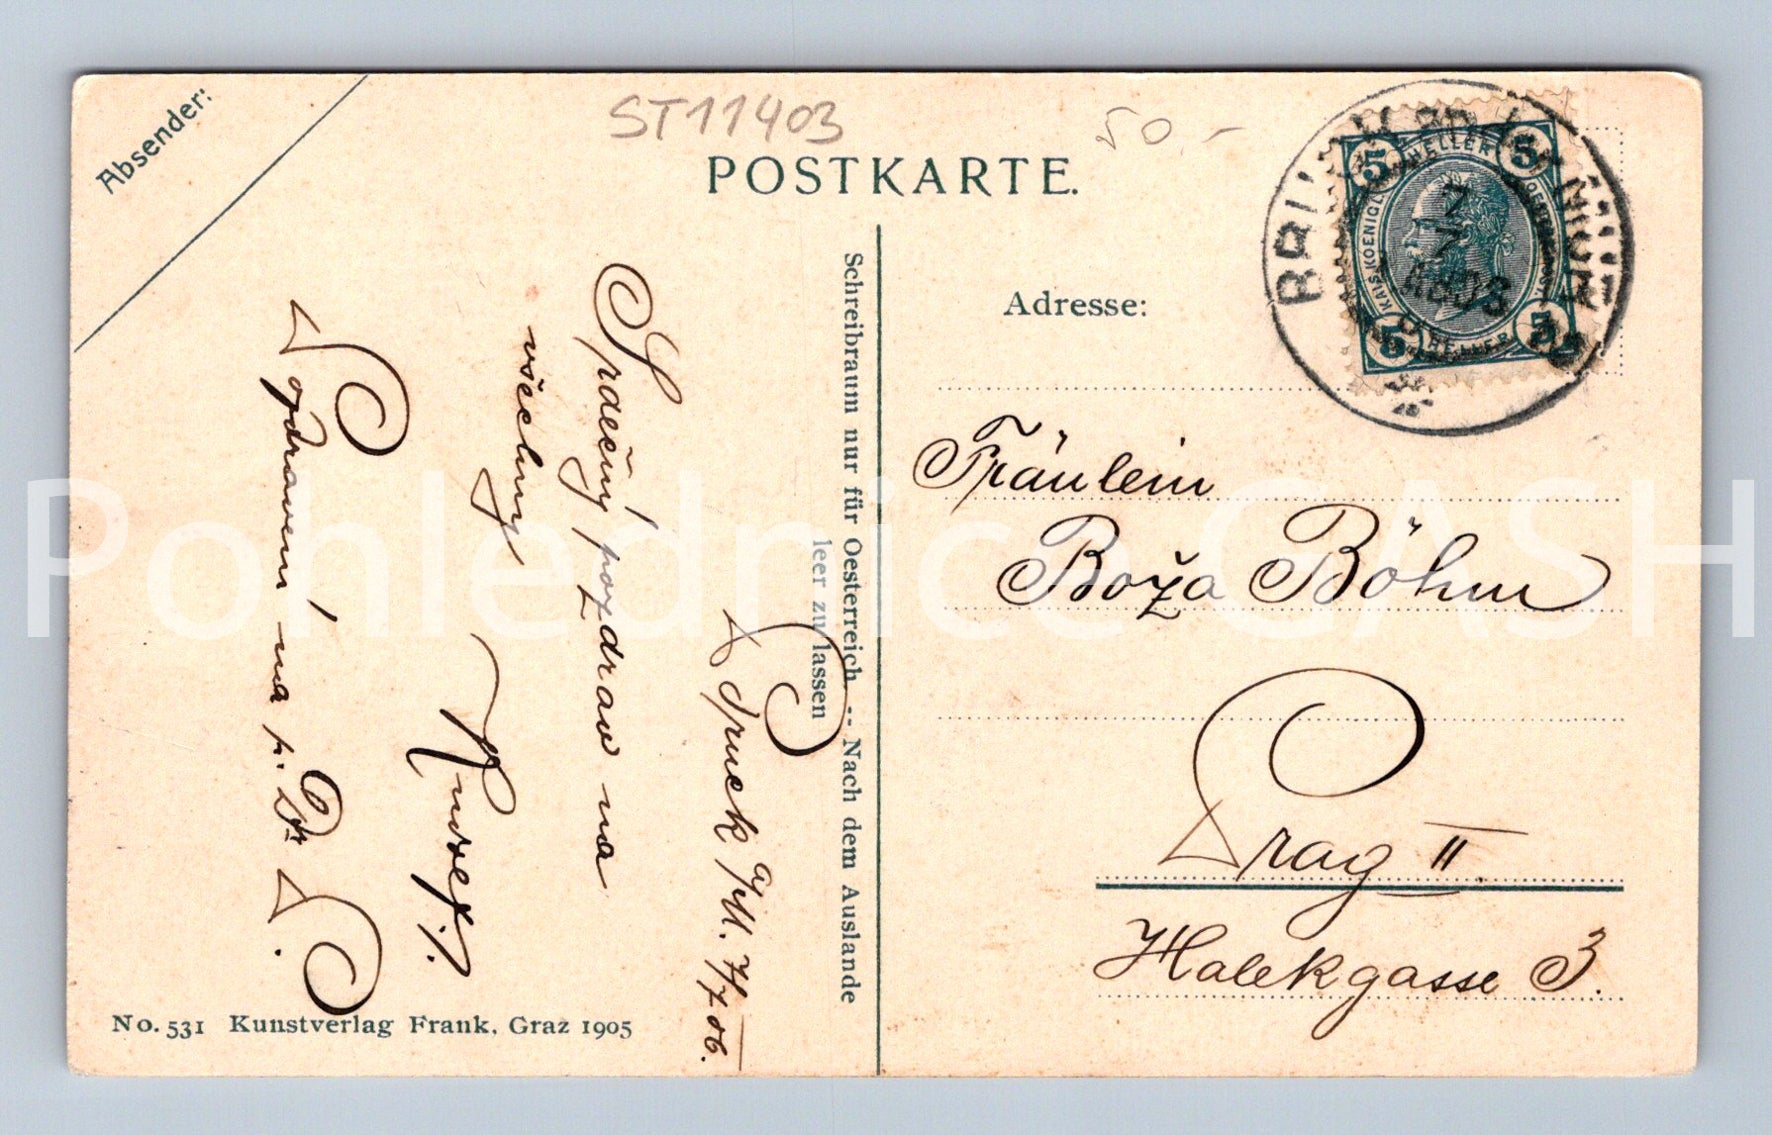 Absender:
ST11403
50.-
POSTKARTE.
Adresse:
Schreibraum nur für Oesterreich -- Nach dem Auslande
leer zu lassen
5 5
HELLER
KAIS. KOENIGL.
5 5
HELLER
BRUCK
7
7
Fräulein
Boža Böhm
Prag II.
Halekgasse 3.
Bruck a/M. 7/7 06.
Srdečný pozdrav na
všechny
Rudolf.
Pozdravení na p. Dr P.
No. 531 Kunstverlag Frank, Graz 1905
Pohlednice GASH